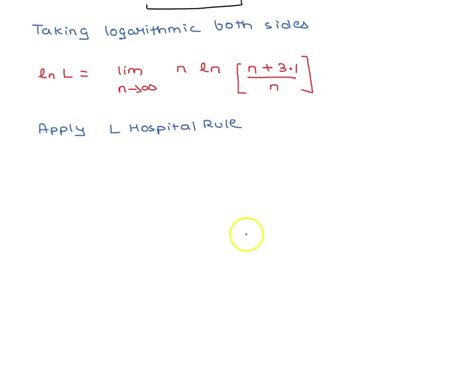 Taking logarithmic both sides
ln L = lim n→∞ n ln [ n + 3.1 / n ]
Apply L Hospital Rule